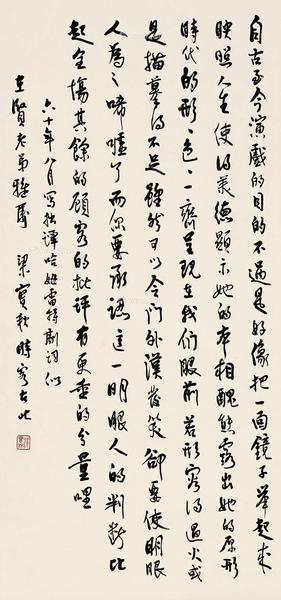 自古至今演戲的目的不過是好像把一面鏡子舉起來
映照人生使得美德顯示她的本相醜態露出她的原形
時代的形形色色一齊呈現在我們眼前若形容得過火或
是描摹得不足雖然可以令門外漢發笑卻要使明眼
人為之唏噓了而你要承認這一明眼人的判斷比
起全場其餘的顧客的批評有更重的分量哩
六十年八月寫拙譯哈姆雷特劇詞似
在賢老弟雅屬 梁實秋時客台北